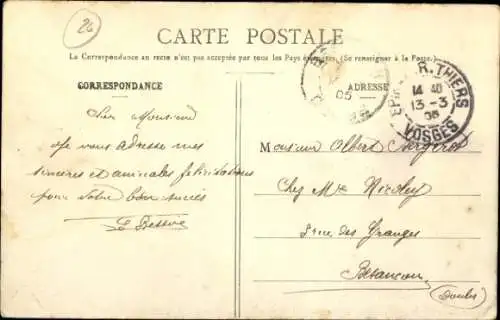 26
CARTE POSTALE
La Correspondance au recto n'est pas acceptée par tous les Pays étrangers. (Se renseigner à la Poste.)
CORRESPONDANCE
ADRESSE
05
R. THIERS
14 40
13 - 3
05
VOSGES
Cher Monsieur
Je vous adresse mes
sincères et amicales félicitations
pour votre bon succès
Monsieur Albert
Chez Mme Nicoley
rue des Granges
Besançon
(Doubs)